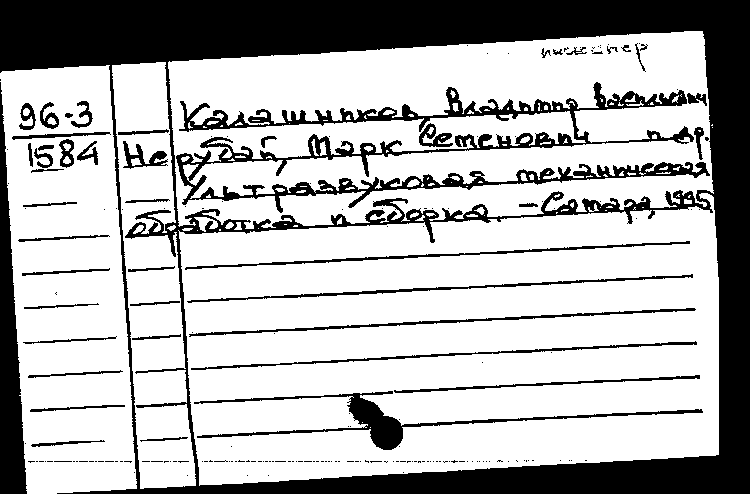 инженер
96-3 Калашников, Владимир Васильевич
1584 Нерубай, Марк Семенович и др.
Ультразвуковая механическая
обработка и сборка. - Самара, 1995.